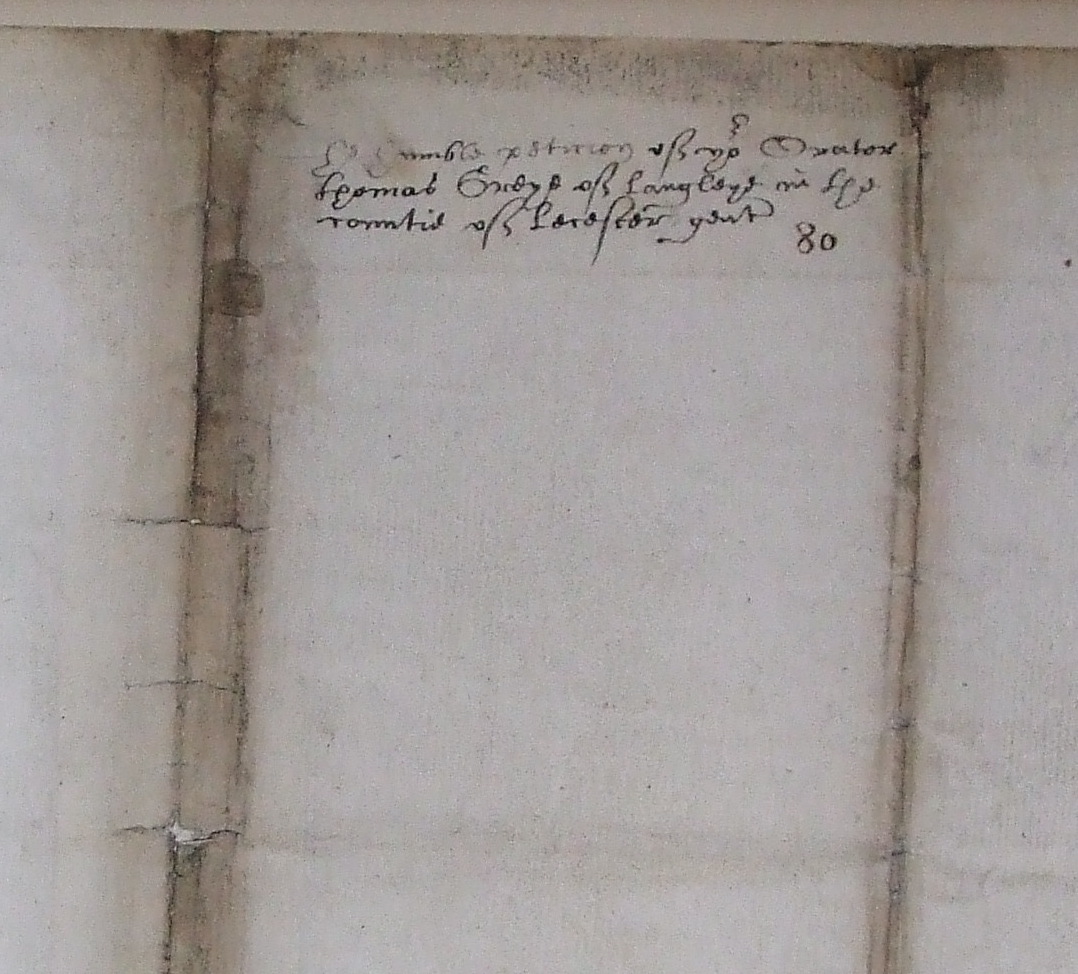 The humble peticion off yor Orator
Thomas Greye off Langleye in the
countie off Lecester gent
80